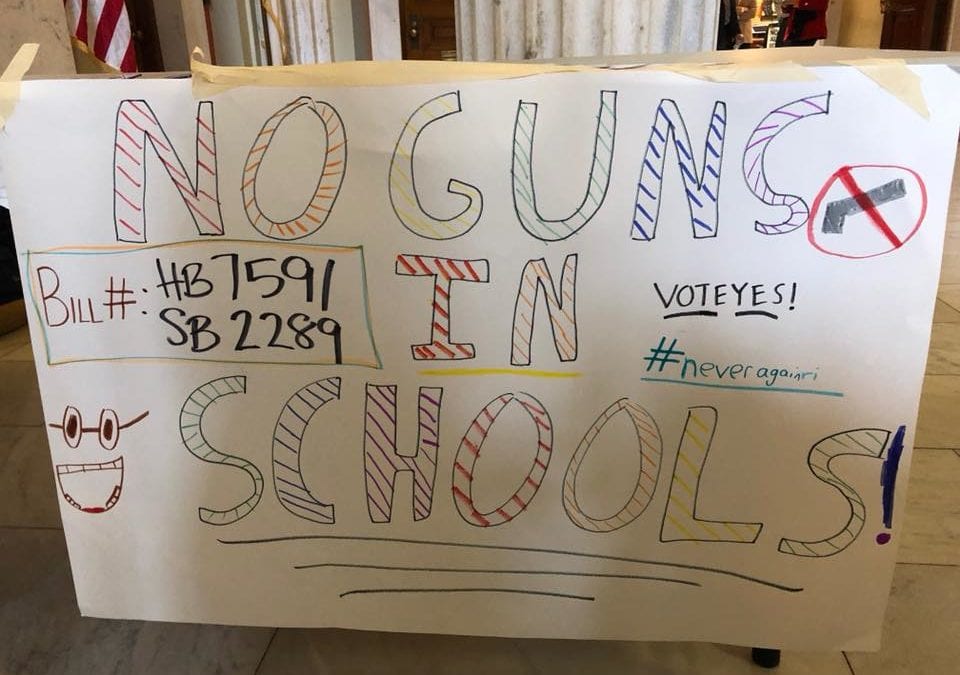 NO GUNS
BILL #: HB 7591
SB 2289
IN
VOTE YES!
#neveragainri
SCHOOLS!